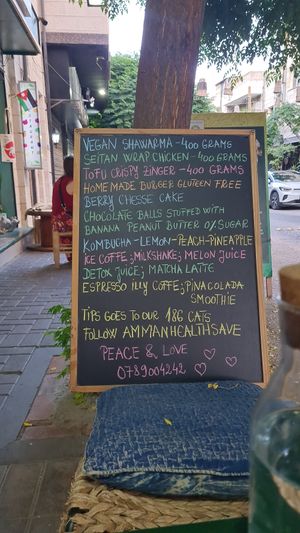 VEGAN SHAWARMA - 400 GRAMS
SEITAN WRAP CHICKEN - 400 GRAMS
TOFU CRISPY ZINGER - 400 GRAMS
HOME MADE BURGER GLUTEEN FREE
BERRY CHESSE CAKE
CHOCOLATE BALLS STUFFED WITH
BANANA PEANUT BUTTER 0% SUGAR
KOMBUCHA - LEMON - PEACH - PINEAPPLE
ICE COFFE ; MILKSHAKE ; MELON JUICE
DETOX JUICE ; MATCHA LATTE
ESPRESSO ILLY COFFE ; PINA COLADA
SMOOTHIE
TIPS GOES TO OUR 186 CATS
FOLLOW AMMANHEALTHSAVE
PEACE & LOVE
0789004242